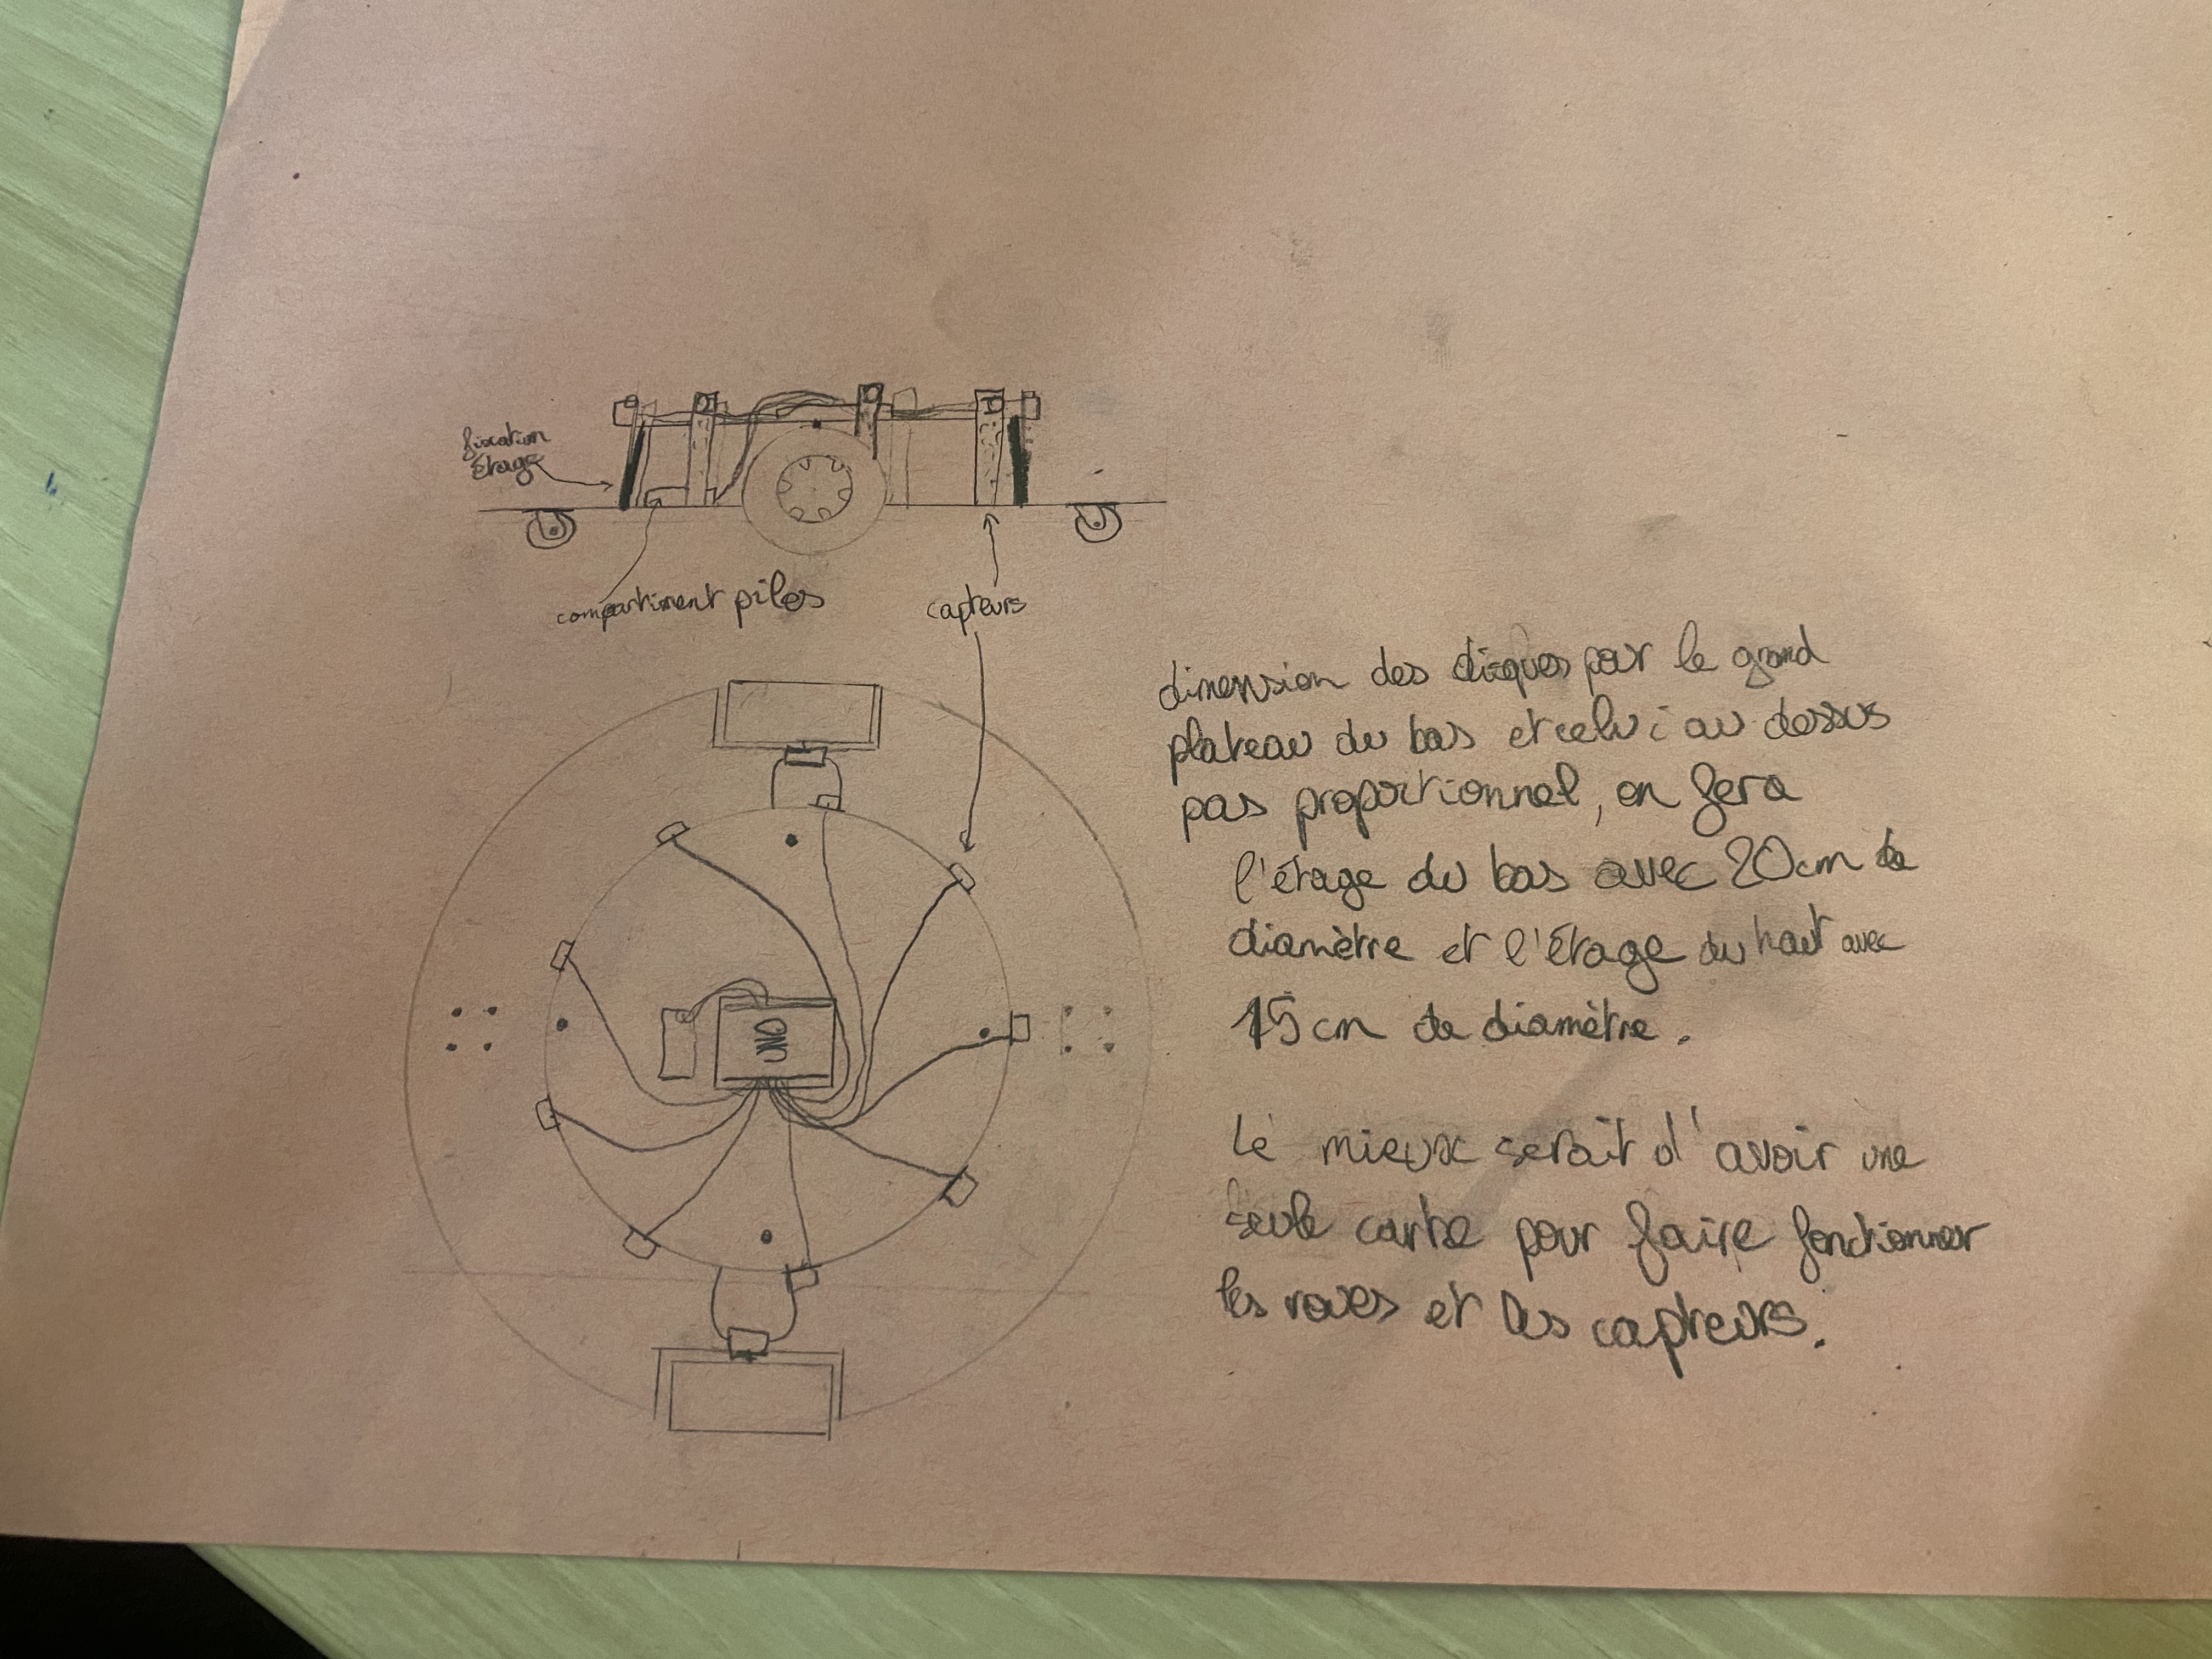 fixation
étage
compartiment piles
capteurs
UNO
dimension des disques pour le grand
plateau du bas et celui au dessus
pas proportionnel, on fera
l'étage du bas avec 20cm de
diamètre et l'étage du haut avec
15cm de diamètre.
Le mieux serait d'avoir une
seule carte pour faire fonctionner
les roues et les capteurs.